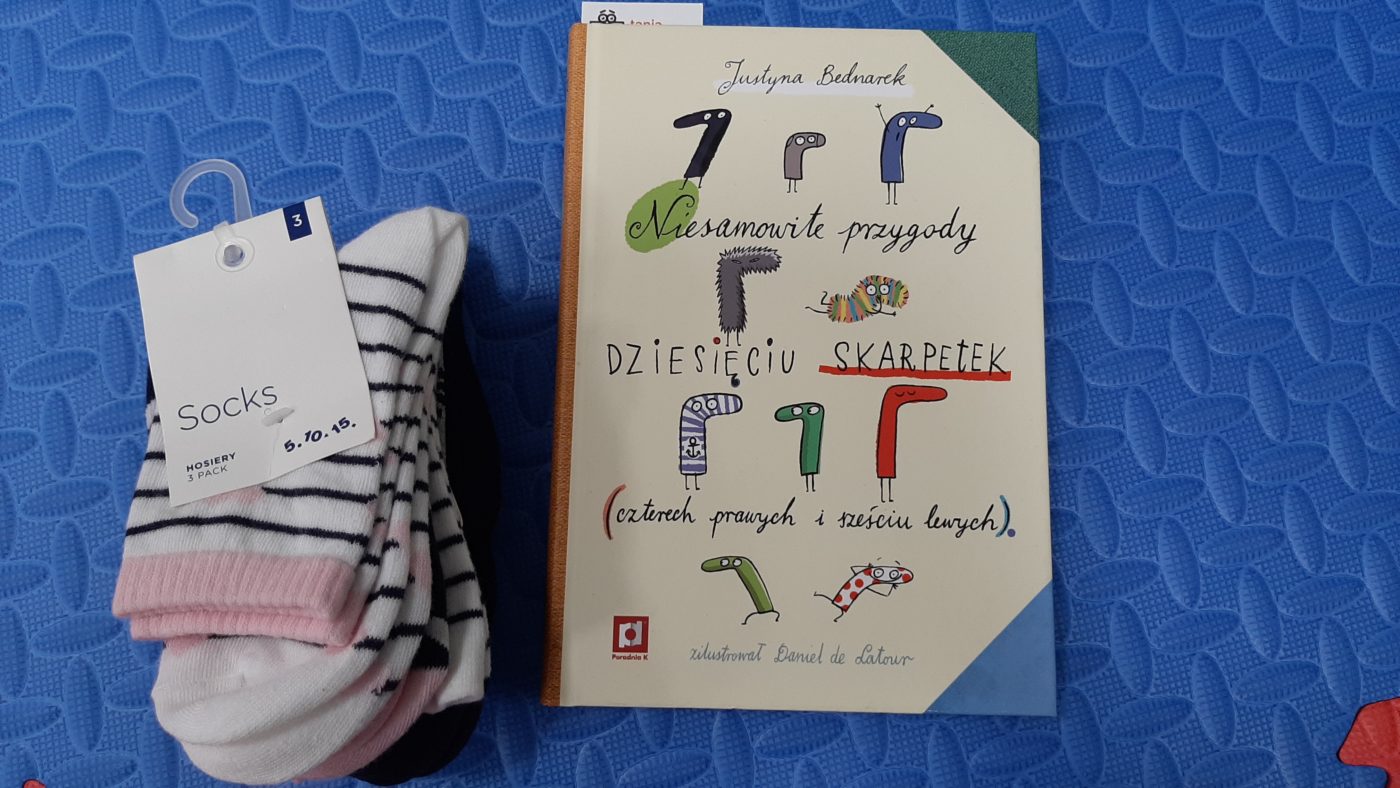 3
Socks
5.10.15.
HOSIERY
3 PACK
tania
Justyna Bednarek
Niesamowite przygody
DZIESIĘCIU SKARPETEK
(czterech prawych i sześciu lewych).
Poradnia K
zilustrował Daniel de Latour